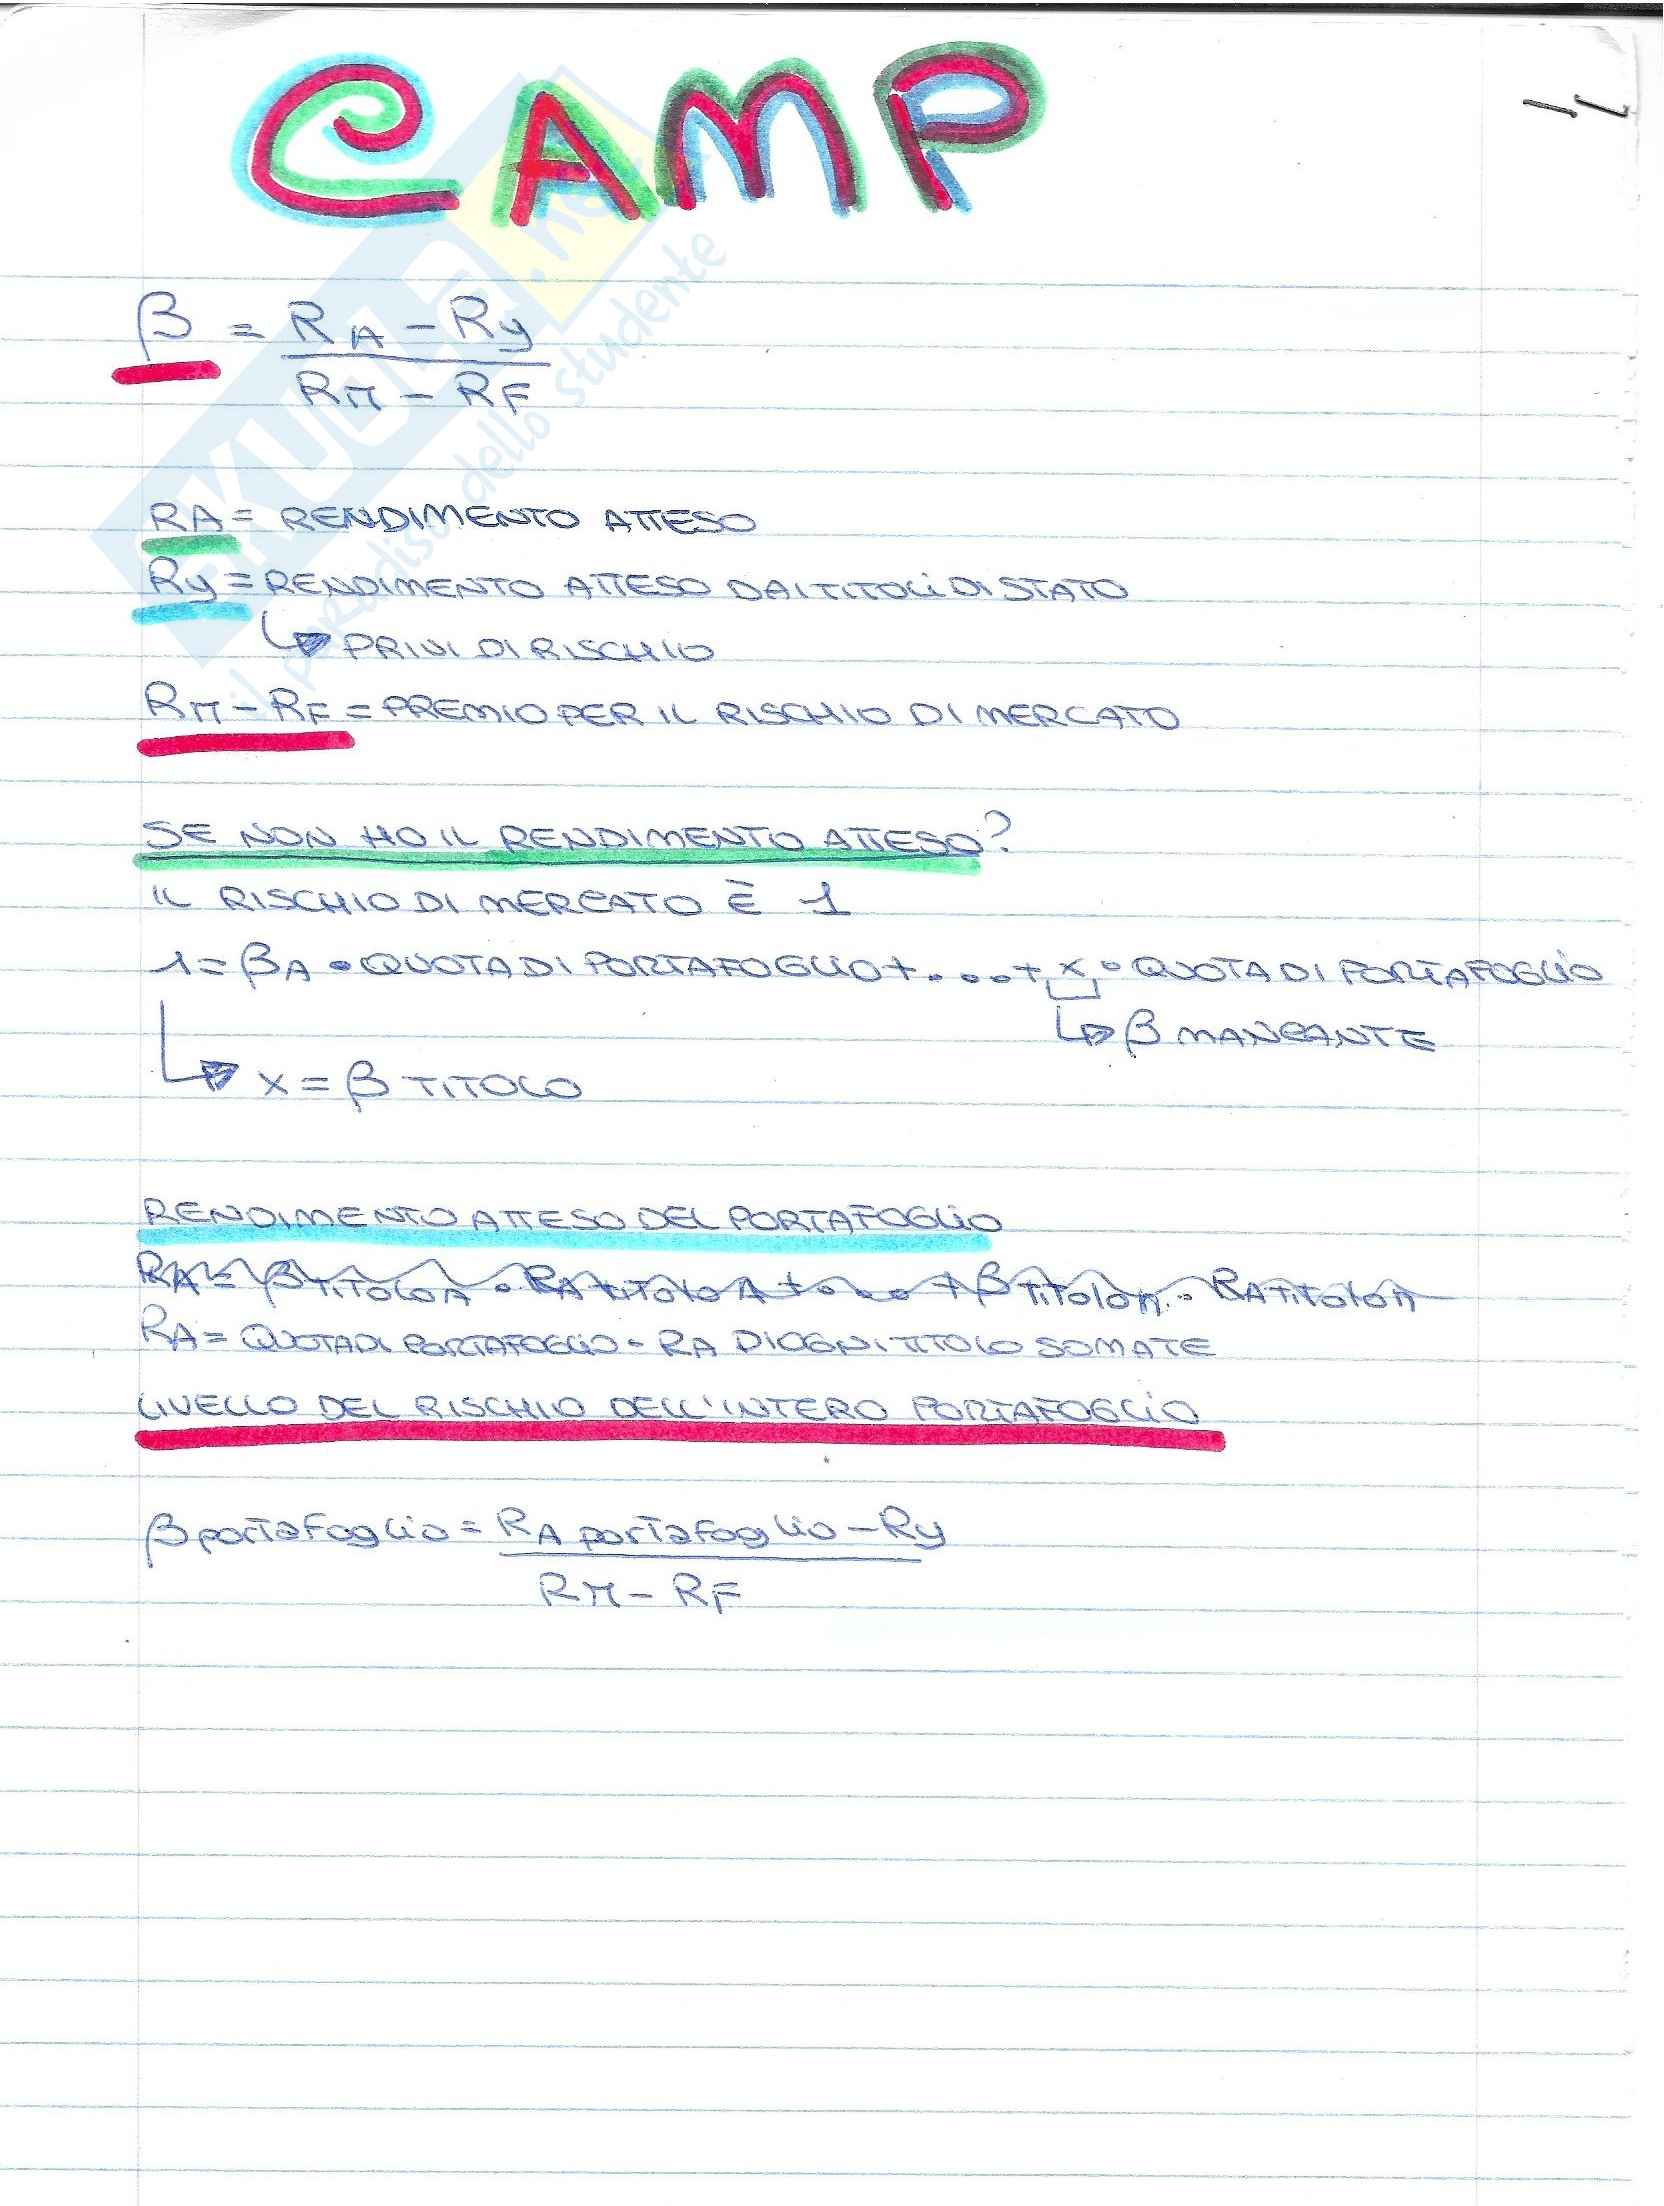 CAMP
β = (RA - Ry) / (RM - RF)
RA = RENDIMENTO ATTESO
Ry = RENDIMENTO ATTESO DAI TITOLI DI STATO
↳ PRIVI DI RISCHIO
RM - RF = PREMIO PER IL RISCHIO DI MERCATO
SE NON HO IL RENDIMENTO ATTESO?
IL RISCHIO DI MERCATO È 1
1 = βA • QUOTA DI PORTAFOGLIO + ... + x • QUOTA DI PORTAFOGLIO
↳ β MANCANTE
↳ x = β TITOLO
RENDIMENTO ATTESO DEL PORTAFOGLIO
RA = β TITOLO A • RA TITOLO A + ... + β TITOLO n • RA TITOLO n
RA = QUOTA DI PORTAFOGLIO • RA DI OGNI TITOLO SOMATE
LIVELLO DEL RISCHIO DELL'INTERO PORTAFOGLIO
β portafoglio = (RA portafoglio - Ry) / (RM - RF)
SKUOLA.net
il paradiso dello studente